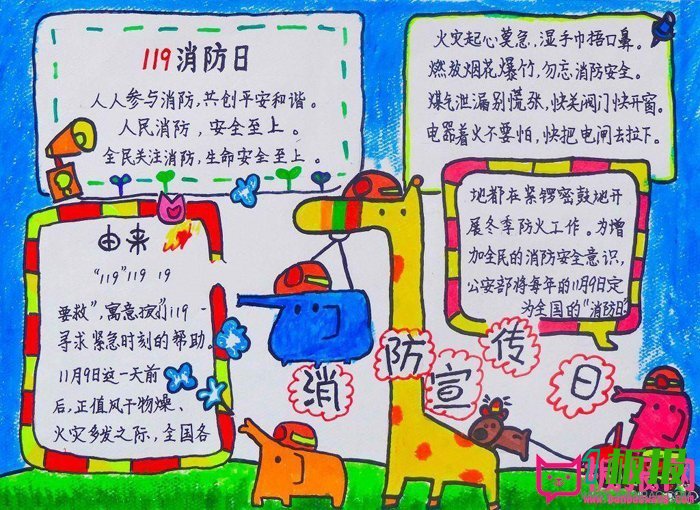 119消防日
人人参与消防，共创平安和谐。
人民消防，安全至上。
全民关注消防，生命安全至上。
火灾起心莫急，湿手巾捂口鼻。
燃放烟花爆竹，勿忘消防安全。
煤气泄漏别慌张，快关阀门快开窗。
电器着火不要怕，快把电闸去拉下。
由来
"119"119 19
要救"，寓意我们119
寻求紧急时刻的帮助。
11月9日这一天前
后，正值风干物燥、
火灾多发之际，全国各
地都在紧锣密鼓地开
展冬季防火工作。为增
加全民的消防安全意识，
公安部将每年的11月9日定
为全国的"消防日"
消防宣传日